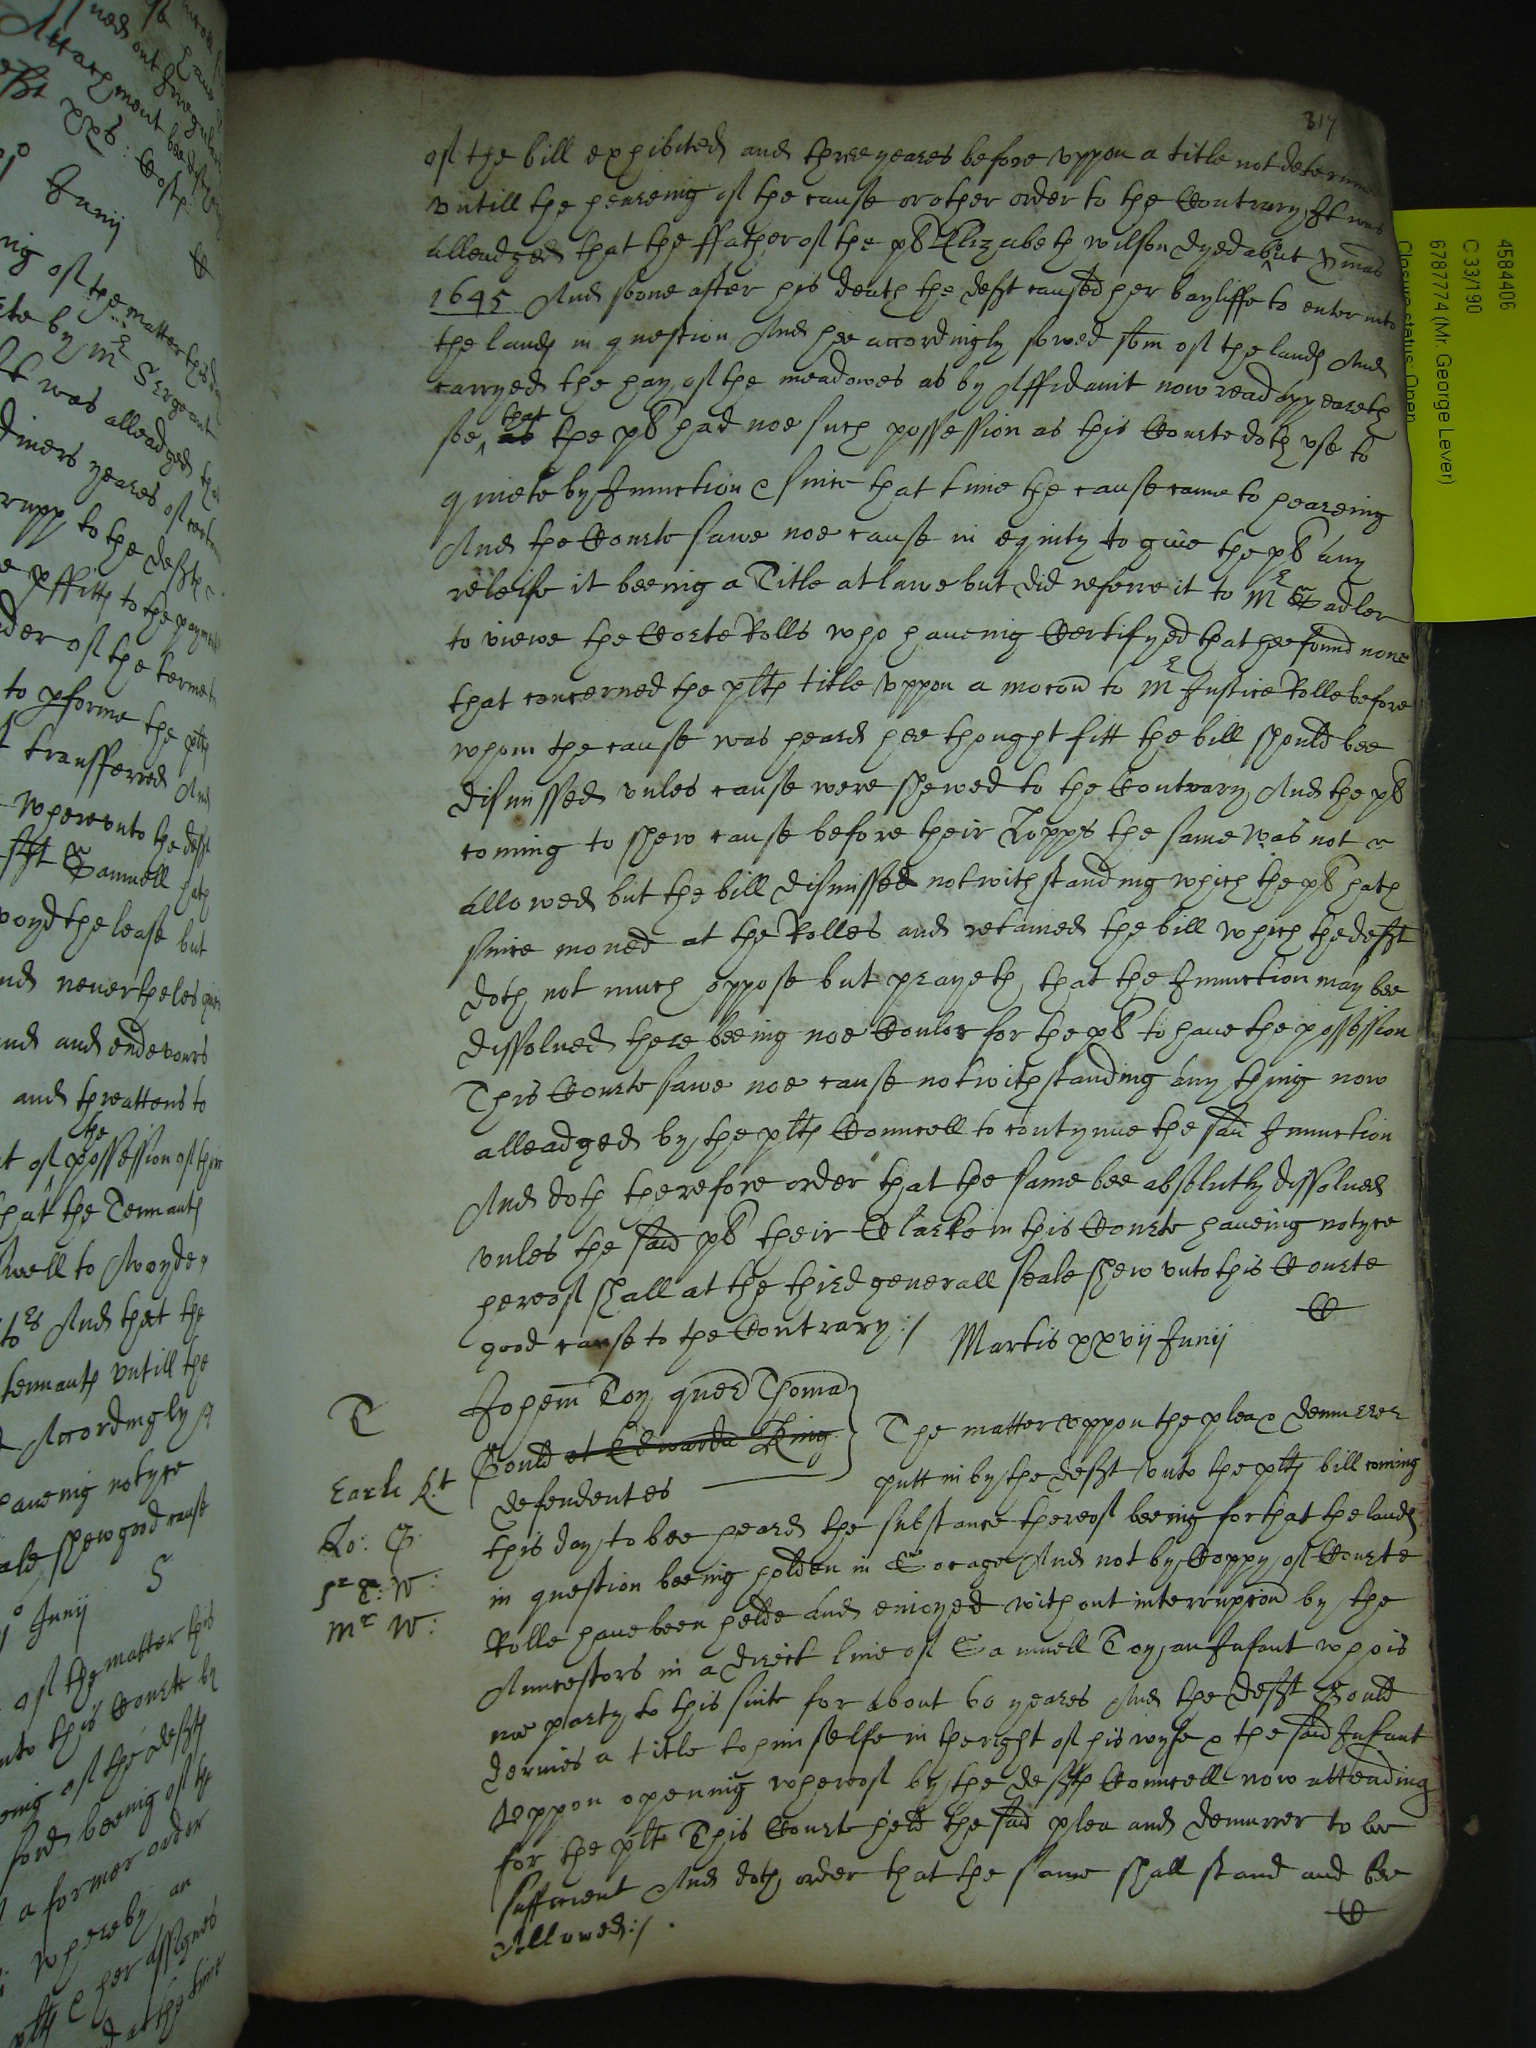 317
of the bill exhibited and three yeares before vppon a title not determined
vntill the heareing of the cause or other order to the Contrary, It was
alleadged that the ffather of the pl Elizabeth wilson dyed about Xmas
1645 And soone after his death the deft caused her bayliffe to enter into
the lands in question And hee accordingly sowed som of the lands And
carryed the hay of the meadowes as by Affidauit now read Appeareth
soe that as the pl had noe such possession as this Courte doth vse to
quiete by Iniunction & since that time the cause came to heareing
And the Courte sawe noe cause in equity to giue the pl any
releife it beeing a Title at lawe but did referre it to Mr Sadler
to viewe the Corte Rolls who haueing Certifyed that hee found none
that concerned the plts title vppon a mocon to Mr Justice Rolle before
whom the cause was heard hee thought fitt the bill should bee
dismissed vnles cause were shewed to the Contrary, And the pl
coming to shew cause before their Lopps the same was not
allowed but the bill dismissed notwithstanding which the pl hath
since moued at the Rolles and retained the bill which the deft
doth not much oppose but prayeth that the Iniunction may bee
dissolued there beeing noe Coulor for the pl to haue the possession
This Courte sawe noe cause notwithstanding any thing now
alleadged by the plts Councell to contynue the said Iniunction
And doth therefore order that the same bee absolutly dissolued
vnles the said pl their Clarke in this Courte haueing notyce
hereof shall at the third generall seale shew vnto this Courte
good cause to the Contrary:/
Martis xxvij Junij
T
Johem Toy quer Thoma
Gould et Edwardu King
defendentes
Earle K.t
Lo: G:
Mr W:
The matter vppon the plea & demurrer
putt in by the deft vnto the plts bill coming
this day to bee heard the substance thereof beeing for that the lands
in question beeing holden in Socage And not by Coppy of Courte
Rolle haue been helde and enioyed without interrupcon by the
Auncestors in a direct line of Samuell Toy, an Infant who is
noe party to this suite for about 60 yeares And the deft Gould
deriues a title to himselfe in the right of his wyfe & the said Infant
Vppon opening whereof by the defts Councell now attending
for the plt This Courte held the said plea and demurrer to bee
sufficient And doth order that the same shall stand and bee
Allowed:/
4584406
C 33/190
6787774 (Mr. George Lever)
Closure status: Open
Junij
of the matter this day
te by Mr Sergeant
t was alleadged that
diuers yeares of
to the defts
to the payment
der of the terme
to pforme the plts
t transferred And
Wherevnto the deft
Samuell hath
voyd the lease but
nd neuertheles
and and endevours
and threattens to
the
t of possession of
hat the Tennants
well to Avoyde
tors And that the
tennants vntill the
Accordingly
haueing notyce
ale shew good cause
S
Junij
of the matter this
nto this Courte by
eing of the defts
ford beeing of the
a former order
Whereby an
plts & her assignes